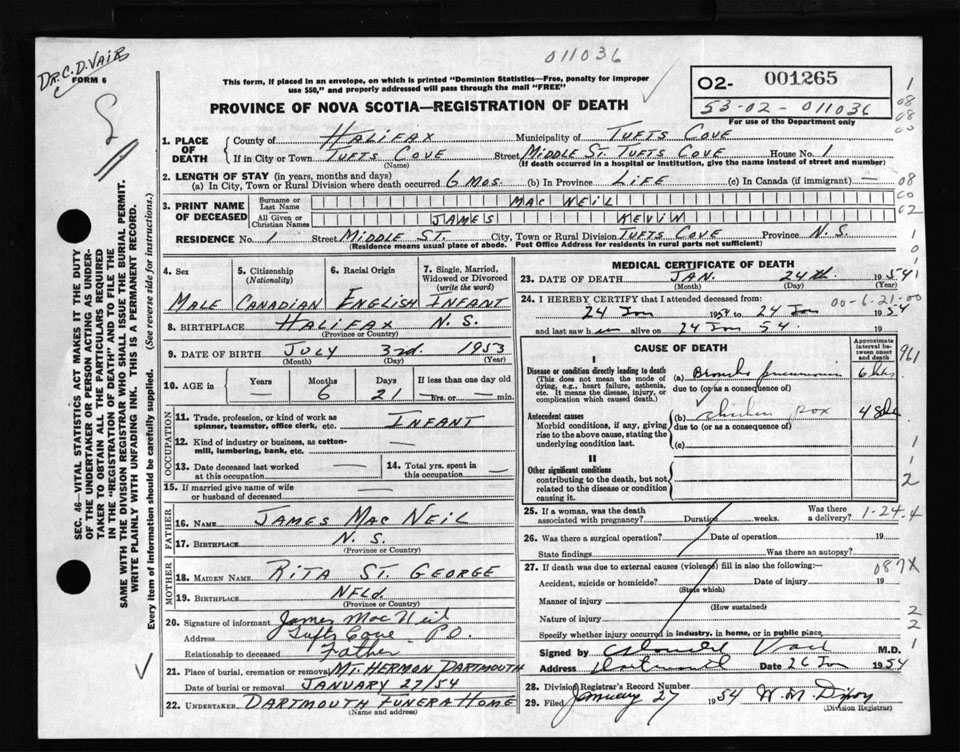 011036
DR. C. D. VAIR
FORM 6
This form, if placed in an envelope, on which is printed "Dominion Statistics—Free, penalty for improper
use $50," and properly addressed will pass through the mail "FREE"
02- 001265
53-02-011036
For use of the Department only
PROVINCE OF NOVA SCOTIA—REGISTRATION OF DEATH
1. PLACE OF DEATH County of HALIFAX Municipality of TUFTS COVE
If in City or Town TUFTS COVE Street MIDDLE ST. TUFTS COVE House No. 1
(Name) (If death occurred in a hospital or institution, give the name instead of street and number)
2. LENGTH OF STAY (in years, months and days)
(a) In City, Town or Rural Division where death occurred 6 MOS. (b) In Province LIFE (c) In Canada (if immigrant) —
3. PRINT NAME OF DECEASED Surname or Last Name MAC NEIL
All Given or Christian Names JAMES KEVIN
RESIDENCE No. 1 Street MIDDLE ST. City, Town or Rural Division TUFTS COVE Province N. S.
(Residence means usual place of abode. Post Office Address for residents in rural parts not sufficient)
4. Sex 5. Citizenship (Nationality) 6. Racial Origin 7. Single, Married, Widowed or Divorced (write the word)
MALE CANADIAN ENGLISH INFANT
8. BIRTHPLACE HALIFAX N. S.
(Province or Country)
9. DATE OF BIRTH JULY 3rd. 1953
(Month) (Day) (Year)
10. AGE in Years Months Days If less than one day old
— 6 21 — hrs. or — min.
OCCUPATION
11. Trade, profession, or kind of work as spinner, teamster, office clerk, etc. INFANT
12. Kind of industry or business, as cotton-mill, lumbering, bank, etc. —
13. Date deceased last worked at this occupation — 14. Total yrs. spent in this occupation —
15. If married give name of wife or husband of deceased —
FATHER
16. NAME JAMES MAC NEIL
17. BIRTHPLACE N. S.
(Province or Country)
MOTHER
18. MAIDEN NAME RITA ST. GEORGE
19. BIRTHPLACE NFLD.
(Province or Country)
20. Signature of informant James MacNeil
Address Tufts Cove P.O.
Relationship to deceased Father
21. Place of burial, cremation or removal MT. HERMON DARTMOUTH
Date of burial or removal JANUARY 27/54
22. UNDERTAKER DARTMOUTH FUNERAL HOME
(Name and address)
MEDICAL CERTIFICATE OF DEATH
23. DATE OF DEATH JAN. 24th. 1954
(Month) (Day)
24. I HEREBY CERTIFY that I attended deceased from: 00-6-21-00
24 Jan 1954 to 24 Jan 1954
and last saw him alive on 24 Jan 54. 19
CAUSE OF DEATH
Approximate interval between onset and death
I
Disease or condition directly leading to death
(This does not mean the mode of dying, e.g., heart failure, asthenia, etc. It means the disease, injury, or complication which caused death.)
(a) Broncho pneumonia 6 hrs
due to (or as a consequence of)
Antecedent causes
Morbid conditions, if any, giving rise to the above cause, stating the underlying condition last.
(b) chicken pox 4 8
due to (or as a consequence of)
(c)
II
Other significant conditions
contributing to the death, but not related to the disease or condition causing it.
25. If a woman, was the death associated with pregnancy? Duration weeks. Was there a delivery? 1-24-4
26. Was there a surgical operation? Date of operation 19
State findings Was there an autopsy?
27. If death was due to external causes (violence) fill in also the following: 087X
Accident, suicide or homicide? Date of injury 19
(State which)
Manner of injury
(How sustained)
Nature of injury
Specify whether injury occurred in industry, in home, or in public place
Signed by Vair M.D.
Address Dartmouth Date 26 Jan 1954
28. Division Registrar's Record Number
29. Filed January 27 1954 W. M.
(Division Registrar)
SEC. 46—VITAL STATISTICS ACT MAKES IT THE DUTY
OF THE UNDERTAKER OR PERSON ACTING AS UNDER-
TAKER TO OBTAIN ALL THE PARTICULARS REQUIRED
IN THE "REGISTRATION OF DEATH" AND TO FILE THE
SAME WITH THE DIVISION REGISTRAR WHO SHALL ISSUE THE BURIAL PERMIT.
WRITE PLAINLY WITH UNFADING INK. THIS IS A PERMANENT RECORD.
Every item of information should be carefully supplied. (See reverse side for instructions.)
1
08
08
00
08
00
02
1
0
1
961
1
2
2
2
1